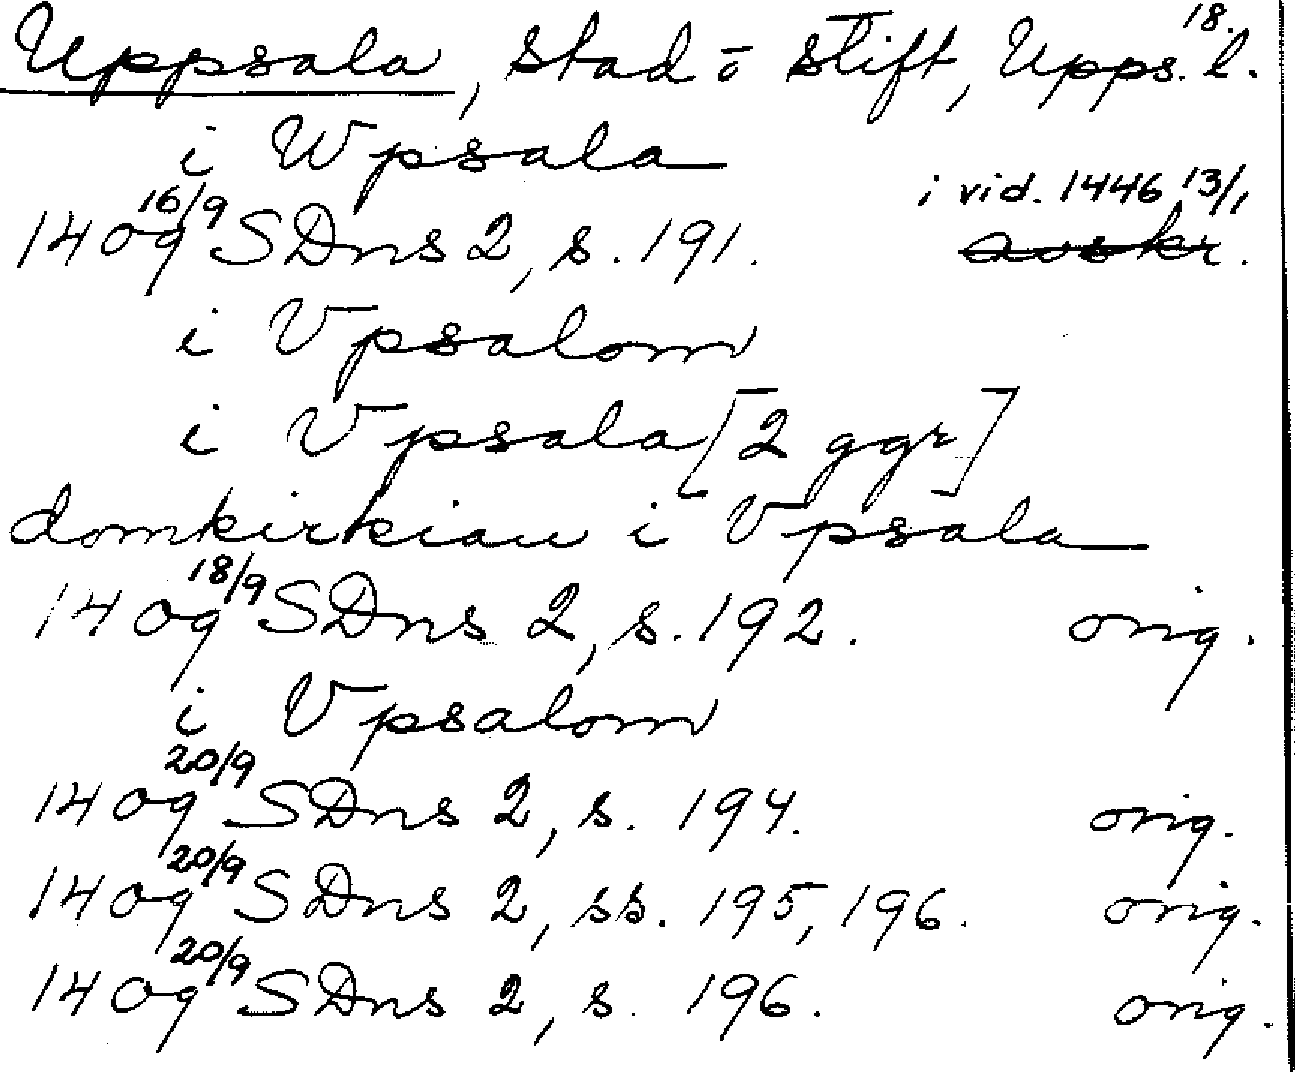 Uppsala, stad ō stift, Upps. l. 18.
i Wpsala
1409 16/9 SDns 2, s. 191. i vid. 1446 13/1
i Vpsalom
i Vpsala [2 ggr]
domkirkian i Vpsala
1409 18/9 SDns 2, s. 192. orig.
i Vpsalom
1409 20/9 SDns 2, s. 194. orig.
1409 20/9 SDns 2, ss. 195, 196. orig.
1409 20/9 SDns 2, s. 196. orig.